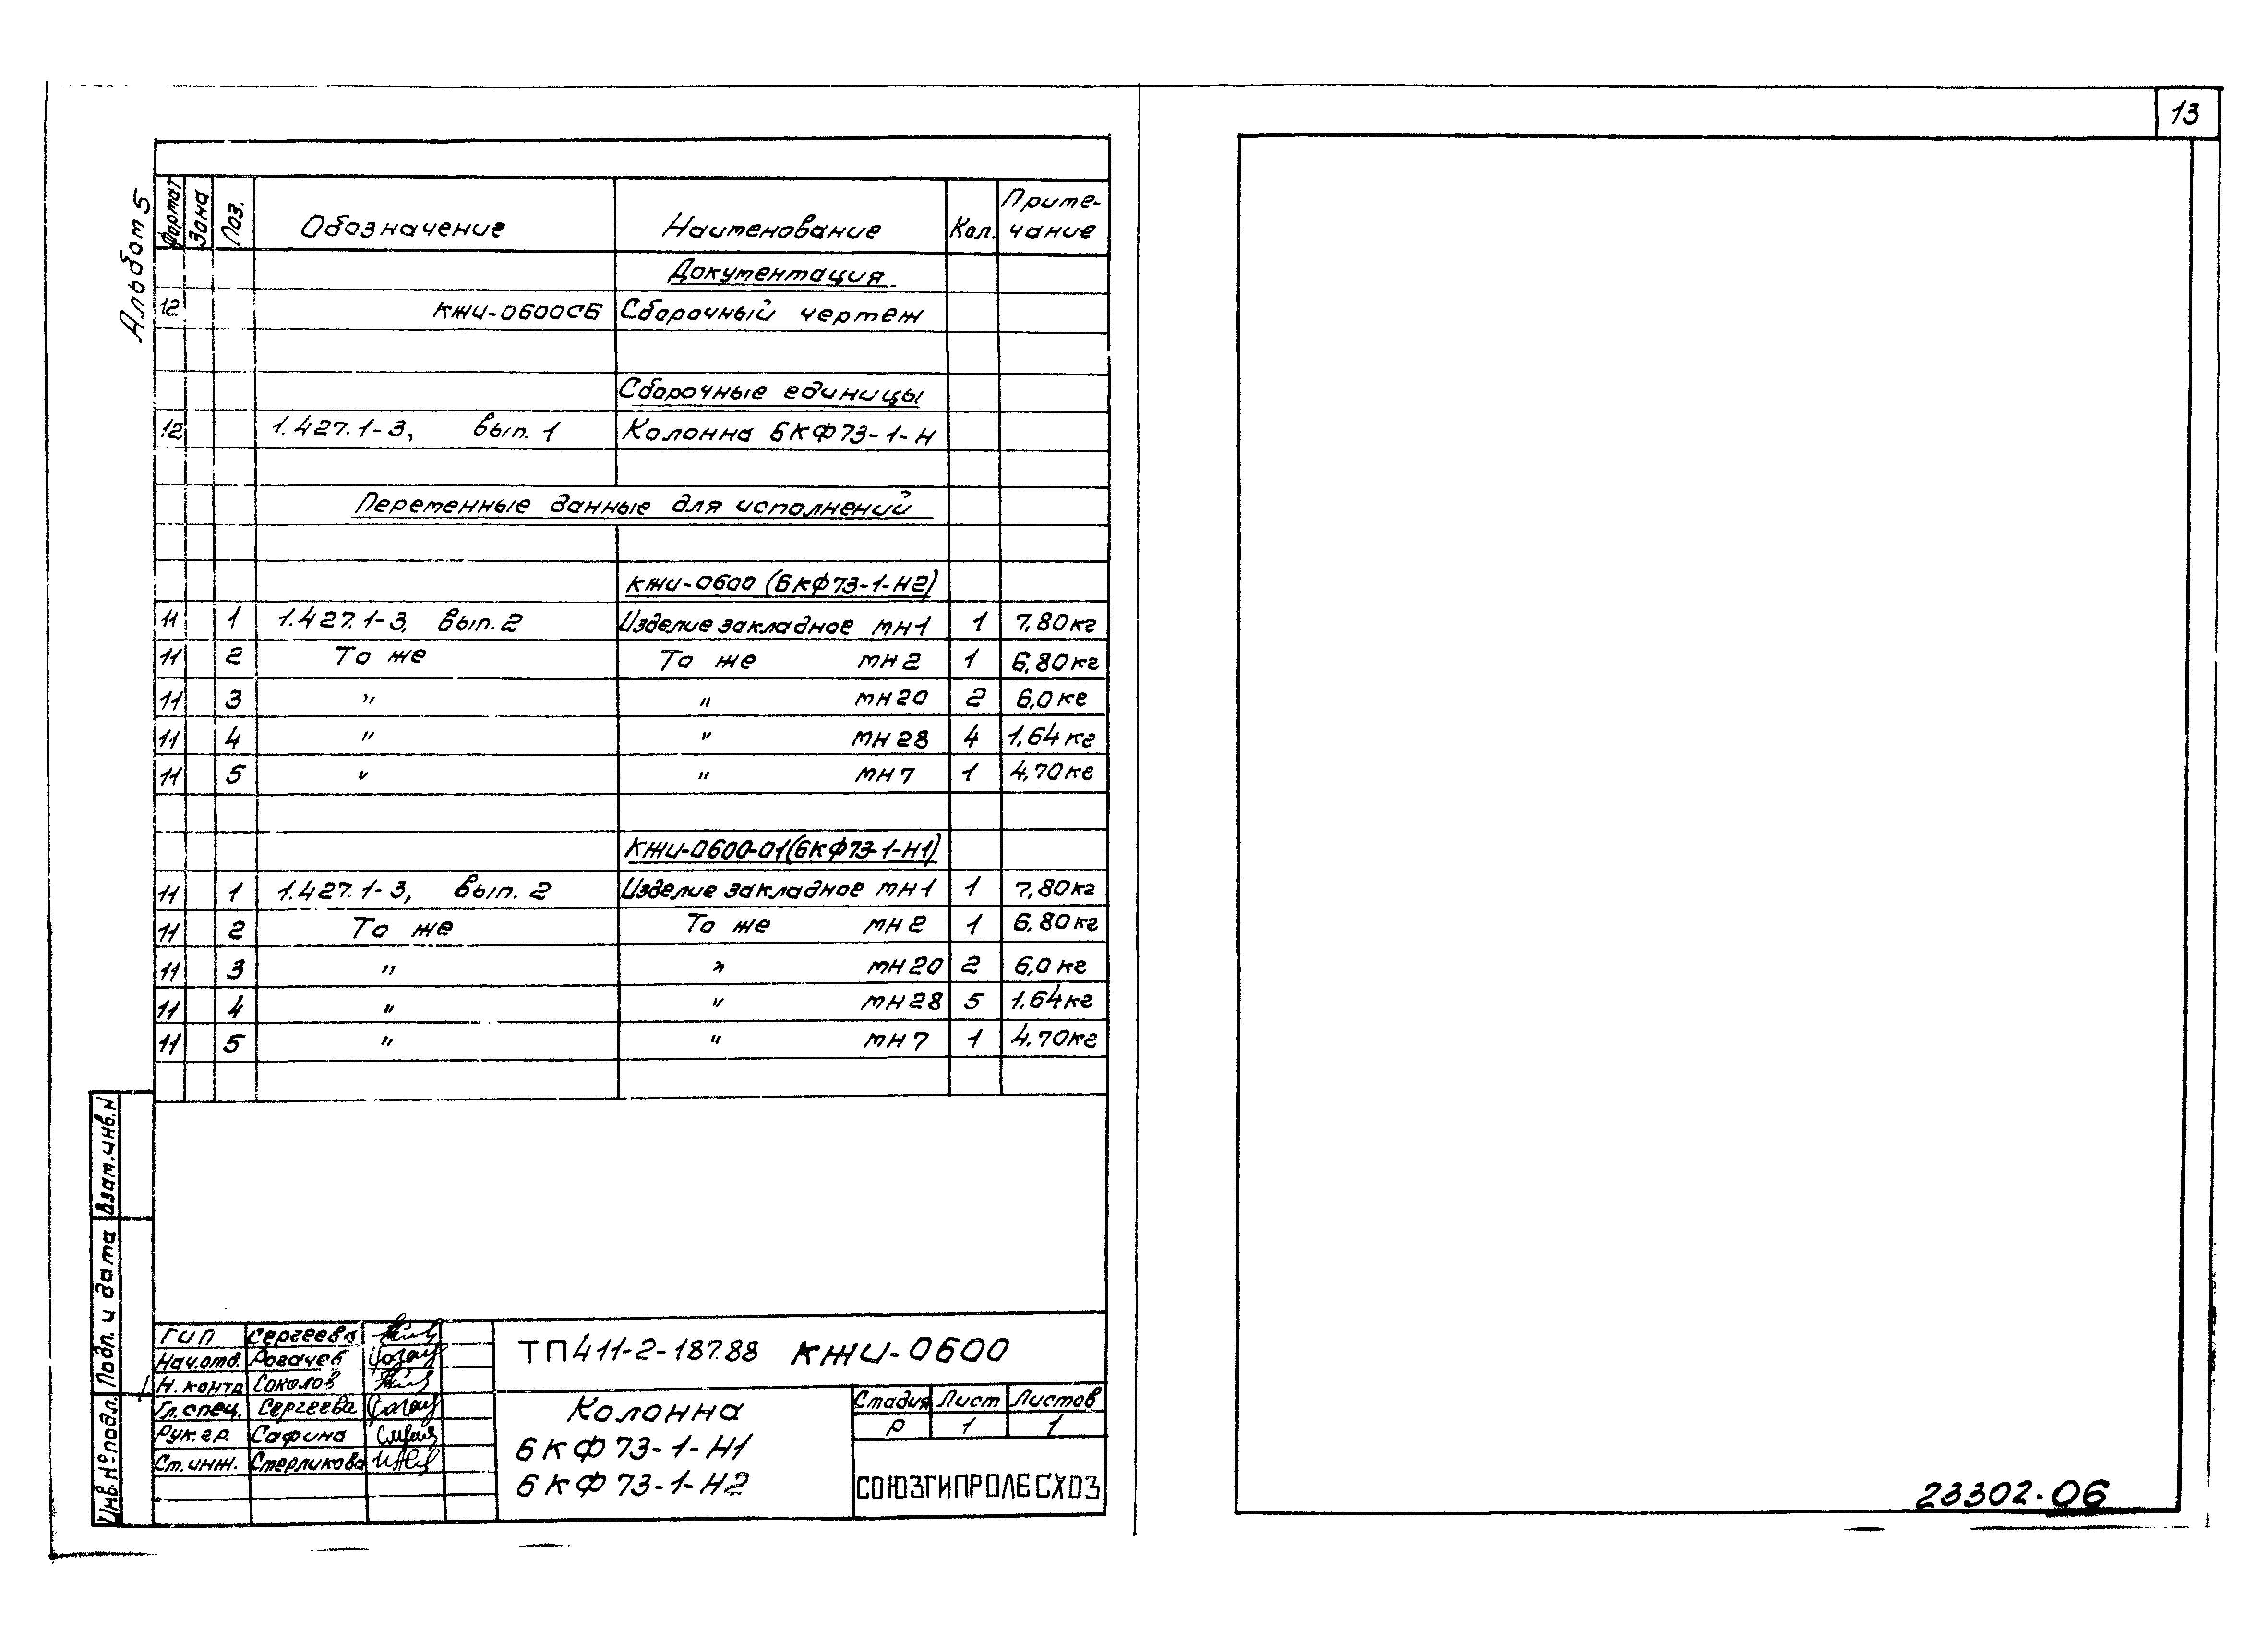 13
Альбом 5
Формат Зона Поз. Обозначение Наименование Кол. Приме-
чание
Документация
12 КЖИ-0600СБ Сборочный чертеж
Сборочные единицы
12 1.427.1-3, вып. 1 Колонна 6КФ73-1-Н
Переменные данные для исполнений
КЖИ-0600 (6КФ73-1-Н2)
11 1 1.427.1-3, вып. 2 Изделие закладное МН1 1 7,80кг
11 2 То же То же МН2 1 6,80кг
11 3 " " МН20 2 6,0кг
11 4 " " МН28 4 1,64кг
11 5 " " МН7 1 4,70кг
КЖИ-0600-01(6КФ73-1-Н1)
11 1 1.427.1-3, вып. 2 Изделие закладное МН1 1 7,80кг
11 2 То же То же МН2 1 6,80кг
11 3 " " МН20 2 6,0кг
11 4 " " МН28 5 1,64кг
11 5 " " МН7 1 4,70кг
Взам.инв.Н
Подп. и дата
Инв.№подл.
ГИП Сергеева
Нач.отд. Рогачев
Н.контр Соколов
Гл.спец. Сергеева
Рук.гр. Сафина
Ст.инж. Стерликова
ТП411-2-187.88 КЖИ-0600
Колонна
6КФ73-1-Н1
6КФ73-1-Н2
Стадия Лист Листов
Р 1 1
СОЮЗГИПРОЛЕСХОЗ
23302-06